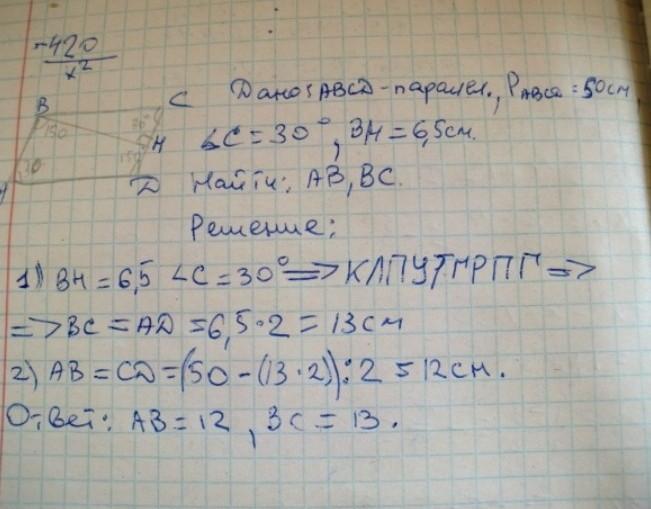 -420
x²
B
C
150
30°
H
150
30
D
Дано: ABCD-паралел., PABCD=50см,
∠C=30°, BH=6,5см.
Найти: AB, BC.
Решение:
1) BH=6,5 ∠C=30° => КЛПУТНРПГ =>
=> BC=AD=6,5·2=13см
2) AB=CD=(50-(13·2)):2=12см.
Ответ: AB=12, BC=13.